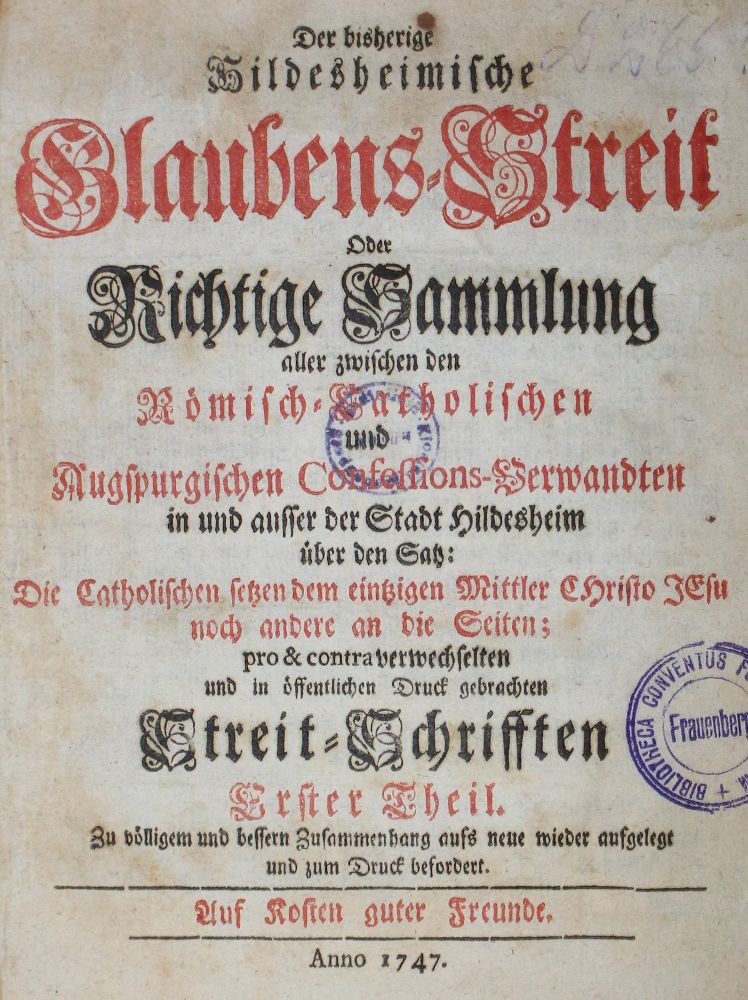 Der bisherige
Hildesheimische
Glaubens-Streit
Oder
Richtige Sammlung
aller zwischen den
Römisch-Catholischen
und
Augspurgischen Confessions-Verwandten
in und ausser der Stadt Hildesheim
über den Satz:
Die Catholischen setzen dem eintzigen Mittler CHristo JEsu
noch andere an die Seiten;
pro & contra verwechselten
und in öffentlichen Druck gebrachten
Streit-Schrifften
Erster Theil.
Zu völligem und bessern Zusammenhang aufs neue wieder aufgelegt
und zum Druck befordert.
Auf Kosten guter Freunde.
Anno 1747.
BIBLIOTHECA CONVENTUS
Frauenberg